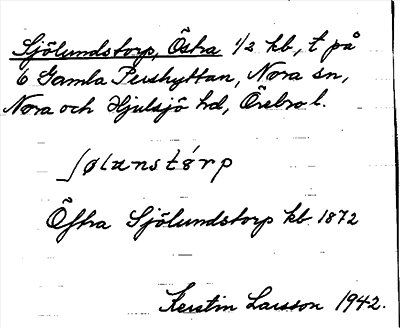 Sjölundstorp, Östra 1/2 kb, t på
6 Gamla Pershyttan, Nora sn,
Nora och Hjulsjö hd, Örebro l.
ʃølunstórp
Östra Sjölundstorp kb 1872
Kerstin Larsson 1942.